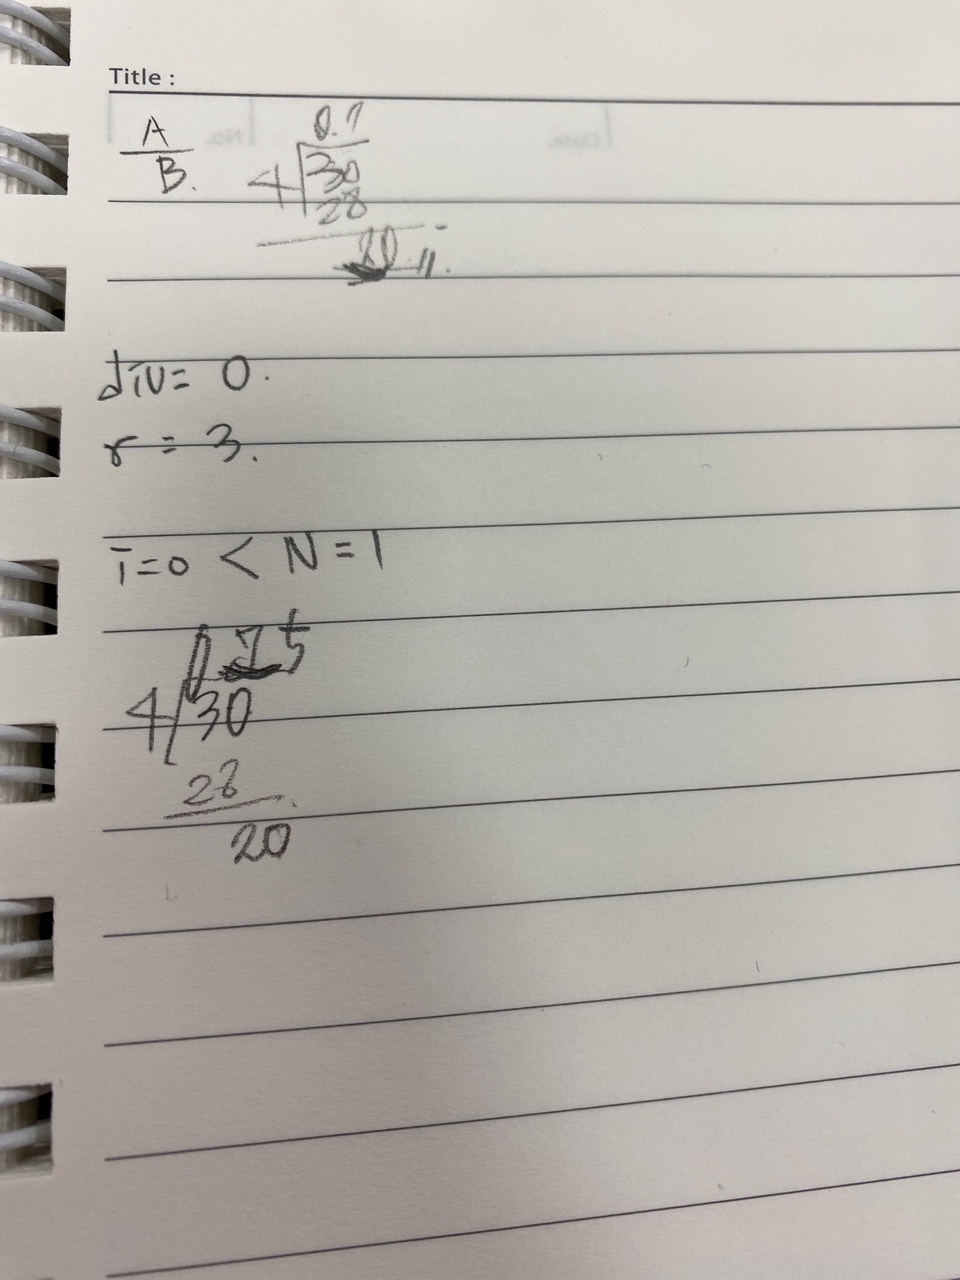 Title :
A
B.
0.7
4 30
28
20
div = 0.
r = 3.
i=0 < N = 1
0.75
4 30
28
20